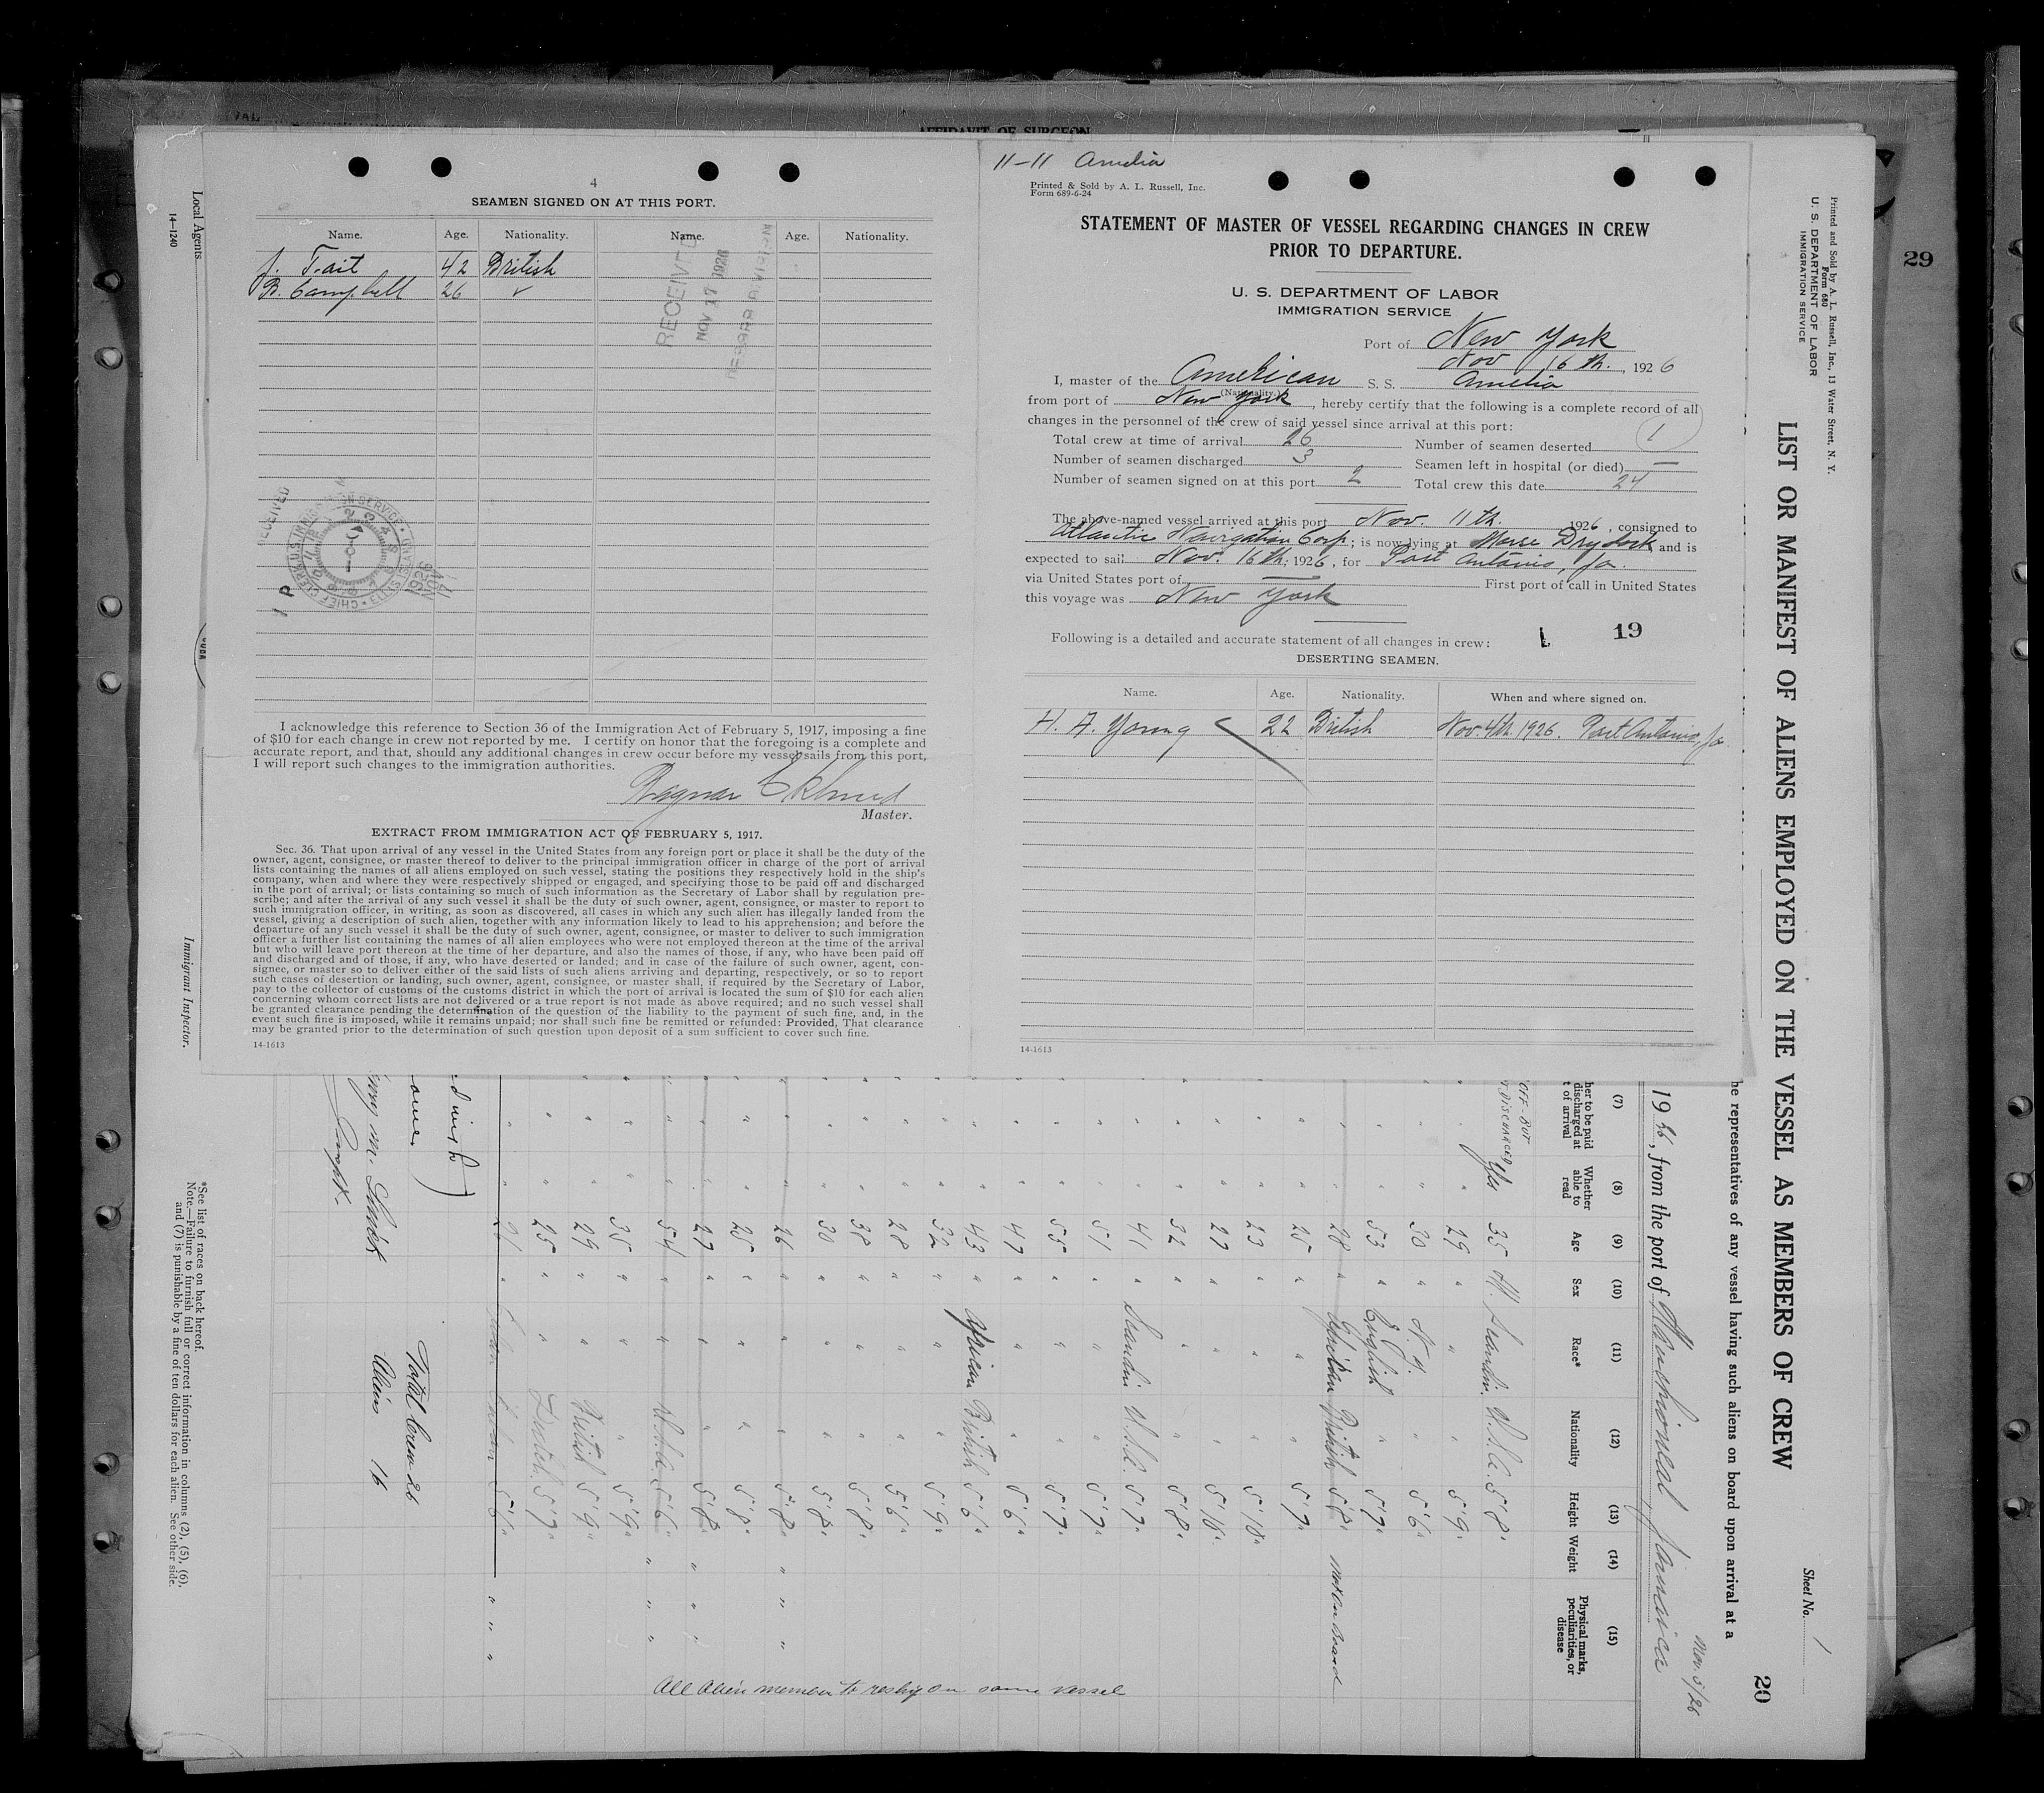 VAL
AFFIDAVIT OF SURGEON
29
4
SEAMEN SIGNED ON AT THIS PORT.
Name. Age. Nationality. Name. Age. Nationality.
J. Tait 42 British
B. Campbell 26 "
RECEIVED
NOV 17 1926
I acknowledge this reference to Section 36 of the Immigration Act of February 5, 1917, imposing a fine
of $10 for each change in crew not reported by me. I certify on honor that the foregoing is a complete and
accurate report, and that, should any additional changes in crew occur before my vessel sails from this port,
I will report such changes to the immigration authorities.
Ragnar Eklund
Master.
EXTRACT FROM IMMIGRATION ACT OF FEBRUARY 5, 1917.
Sec. 36. That upon arrival of any vessel in the United States from any foreign port or place it shall be the duty of the
owner, agent, consignee, or master thereof to deliver to the principal immigration officer in charge of the port of arrival
lists containing the names of all aliens employed on such vessel, stating the positions they respectively hold in the ship's
company, when and where they were respectively shipped or engaged, and specifying those to be paid off and discharged
in the port of arrival; or lists containing so much of such information as the Secretary of Labor shall by regulation pre-
scribe; and after the arrival of any such vessel it shall be the duty of such owner, agent, consignee, or master to report to
such immigration officer, in writing, as soon as discovered, all cases in which any such alien has illegally landed from the
vessel, giving a description of such alien, together with any information likely to lead to his apprehension; and before the
departure of any such vessel it shall be the duty of such owner, agent, consignee, or master to deliver to such immigration
officer a further list containing the names of all alien employees who were not employed thereon at the time of the arrival
but who will leave port thereon at the time of her departure, and also the names of those, if any, who have been paid off
and discharged and of those, if any, who have deserted or landed; and in case of the failure of such owner, agent, con-
signee, or master so to deliver either of the said lists of such aliens arriving and departing, respectively, or so to report
such cases of desertion or landing, such owner, agent, consignee, or master shall, if required by the Secretary of Labor,
pay to the collector of customs of the customs district in which the port of arrival is located the sum of $10 for each alien
concerning whom correct lists are not delivered or a true report is not made as above required; and no such vessel shall
be granted clearance pending the determination of the question of the liability to the payment of such fine, and, in the
event such fine is imposed, while it remains unpaid; nor shall such fine be remitted or refunded: Provided, That clearance
may be granted prior to the determination of such question upon deposit of a sum sufficient to cover such fine.
14-1613
11-11 Amelia
Printed & Sold by A. L. Russell, Inc.
Form 689-6-24
STATEMENT OF MASTER OF VESSEL REGARDING CHANGES IN CREW
PRIOR TO DEPARTURE.
U. S. DEPARTMENT OF LABOR
IMMIGRATION SERVICE
Port of New York
Nov 16th., 1926
I, master of the American S. S. Amelia
(Nationality.)
from port of New York, hereby certify that the following is a complete record of all
changes in the personnel of the crew of said vessel since arrival at this port:
Total crew at time of arrival 26 Number of seamen deserted 1
Number of seamen discharged 3 Seamen left in hospital (or died) —
Number of seamen signed on at this port 2 Total crew this date 24
The above-named vessel arrived at this port Nov. 11th. 1926, consigned to
Atlantic Navigation Corp; is now lying at Morse Dry dock and is
expected to sail Nov. 16th, 1926, for Port Antonio, Ja.
via United States port of — First port of call in United States
this voyage was New York
Following is a detailed and accurate statement of all changes in crew: 19
DESERTING SEAMEN.
Name. Age. Nationality. When and where signed on.
H. A. Young 22 British Nov. 4th. 1926. Port Antonio, Ja
14-1613
Printed and Sold by A. L. Russell, Inc., 13 Water Street, N. Y.
Form 680
U. S. DEPARTMENT OF LABOR
IMMIGRATION SERVICE
LIST OR MANIFEST OF ALIENS EMPLOYED ON THE VESSEL AS MEMBERS OF CREW
Sheet No. 1
20
he representatives of any vessel having such aliens on board upon arrival at a
Nov. 5/26
1926, from the port of Manchioneal Jamaica
(7) (8) (9) (10) (11) (12) (13) (14) (15)
her to be paid
discharged at
t of arrival
Whether
able to
read
Age
Sex
Race*
Nationality
Height
Weight
Physical marks,
peculiarities, or
disease
OFF-BUT
DISCHARGED
Yes 35 M. Scandin. U.S.A. 5'8"
" " 29 " " " 5'9"
" " 30 " " 5'6"
" " 53 " English " 5'7"
" " 28 " British 5'8" Not on board
" " 25 " " " 5'7"
" " 23 " " " 5'10"
" " 27 " " " 5'10"
" " 32 " " " 5'8"
" " 41 " Scandin. U.S.A. 5'7"
" " 51 " " " 5'7"
" " 55 " " " 5'7"
" " 47 " " " 5'6"
" " 43 " African British 5'6"
" " 32 " " " 5'9"
" " 28 " " " 5'6"
" " 38 " " " 5'8"
" " 30 " " " 5'8"
" " 26 " " " 5'8" " " "
" " 25 " " " 5'8"
" " 27 " " " 5'8" " " "
" " 54 " " U.S.A. 5'6" " " "
" " 35 " " " 5'9"
" " 29 " " British 5'9"
" " 25 " " Dutch. 5'7"
" " 26 " Cuban Cuban 5'6" " " "
All Alien member to reship on same vessel
Total Crew 26
Aliens 16
Local Agents
14—1240
Immigrant Inspector.
*See list of races on back hereof.
Note.—Failure to furnish full or correct information in columns (2), (5), (6),
and (7) is punishable by a fine of ten dollars for each alien. See other side.